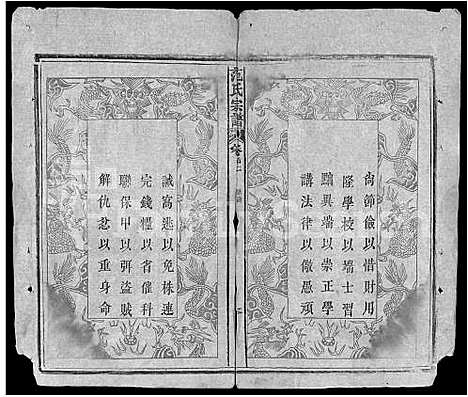 尚節儉以惜財用
隆學校以端士習
黜異端以崇正學
講法律以儆愚頑
范氏宗譜
誡窩逃以免株連
完錢糧以省催科
聯保甲以弭盜賊
解仇忿以重身命